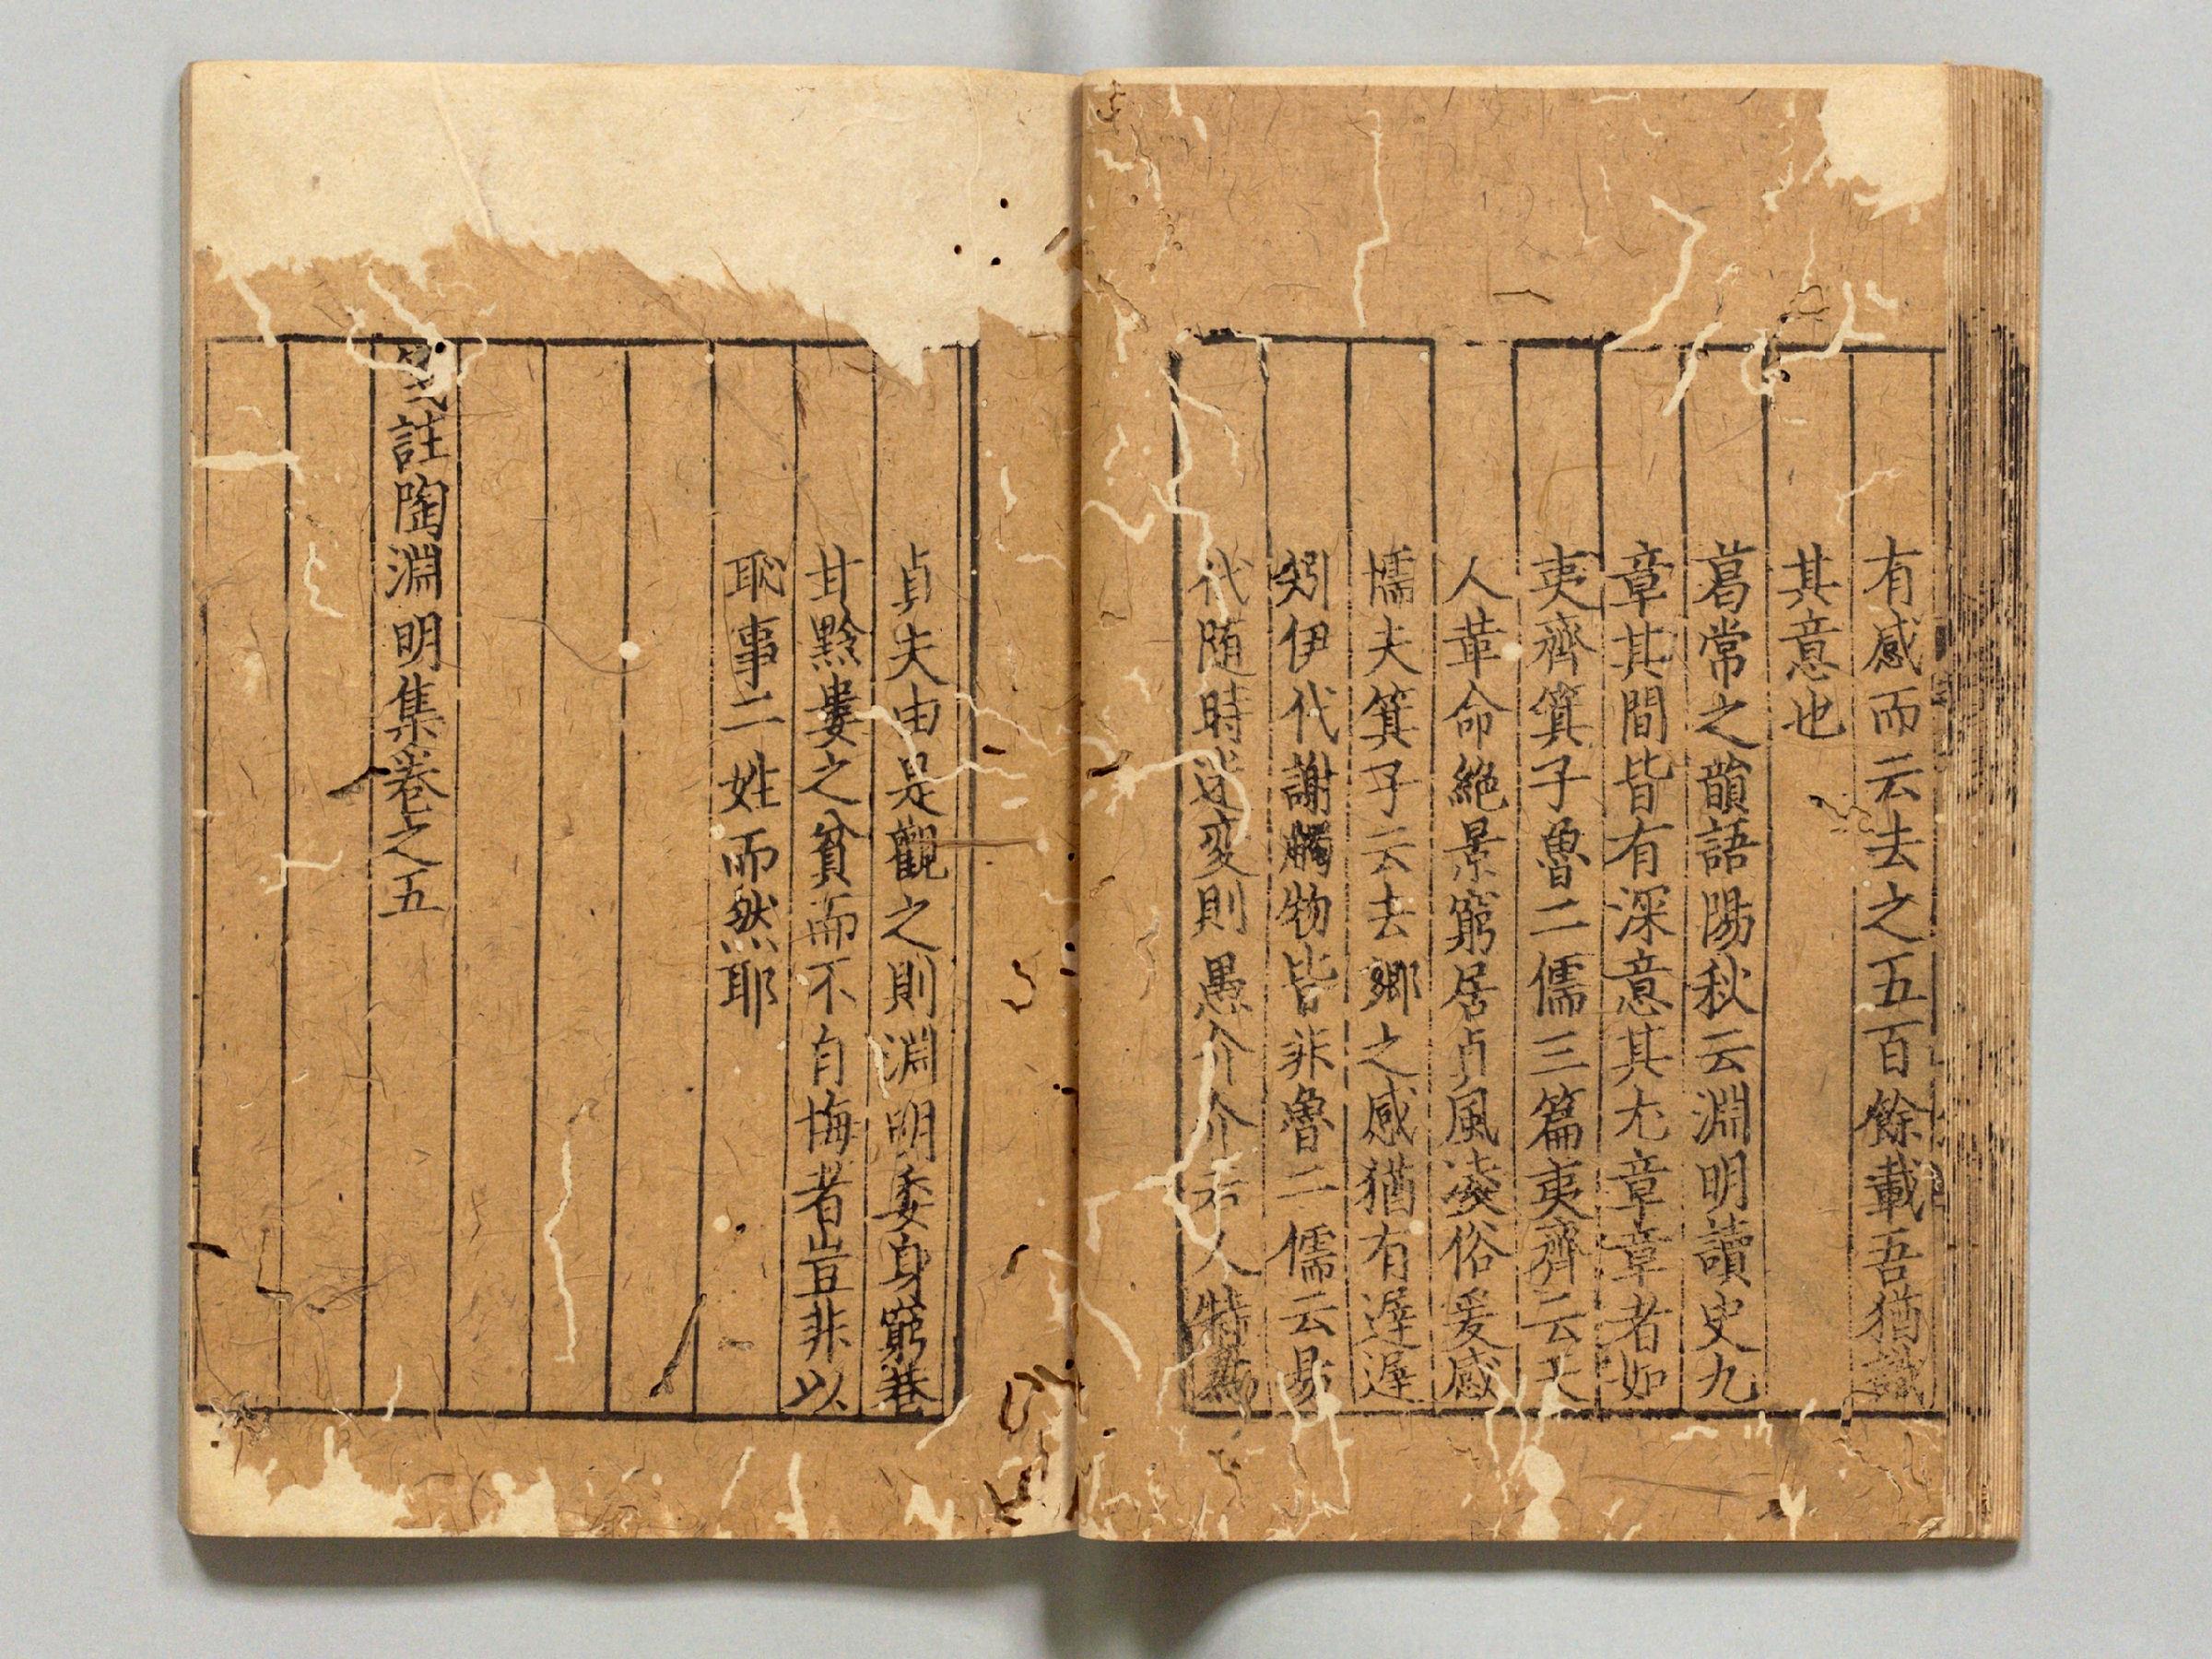 有感而云去之五百餘載吾猶識
其意也
葛常之韻語陽秋云淵明讀史九
章其間皆有深意其尤章章者如
夷齊箕子魯二儒三篇夷齊云天
人革命絶景窮居貞風凌俗爰感
懦夫箕子云去郷之感猶有遲遲
矧伊代謝觸物皆非魯二儒云易
代随時迷変則愚介介若人特爲
貞夫由是觀之則淵明委身窮巷
甘黔婁之貧而不自悔者豈非以
恥事二姓而然耶
註陶淵明集卷之五